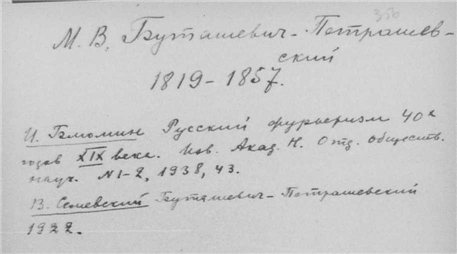 356
М. В. Буташевич-Петрашев-
ский
1819-1857.
И. Блюмин Русский фурьеризм 40х
годов XIX века. Изв. Акад. Н. Отд. обществ.
наук. N1-2, 1938, 43.
В. Семевский Буташевич-Петрашевский
1922.